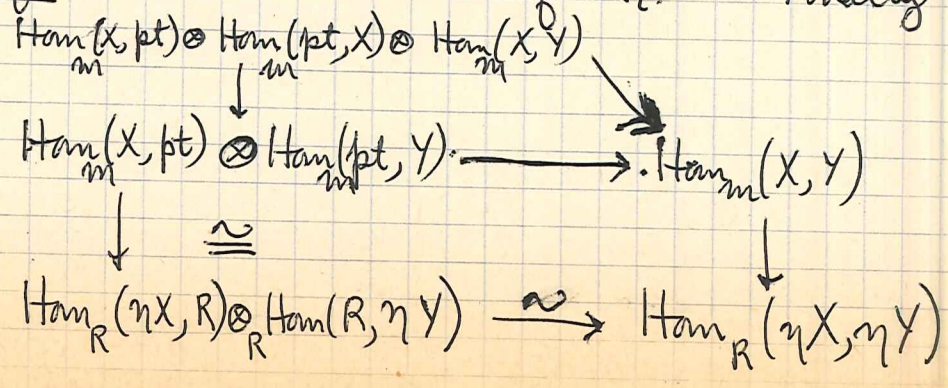 Hom_m(X, pt) ⊗ Hom_m(pt, X) ⊗ Hom_m(X, Y)
Hom_m(X, pt) ⊗ Hom_m(pt, Y) ⟶ Hom_m(X, Y)
≅
Hom_R(ηX, R) ⊗_R Hom(R, ηY) ⥲ Hom_R(ηX, ηY)